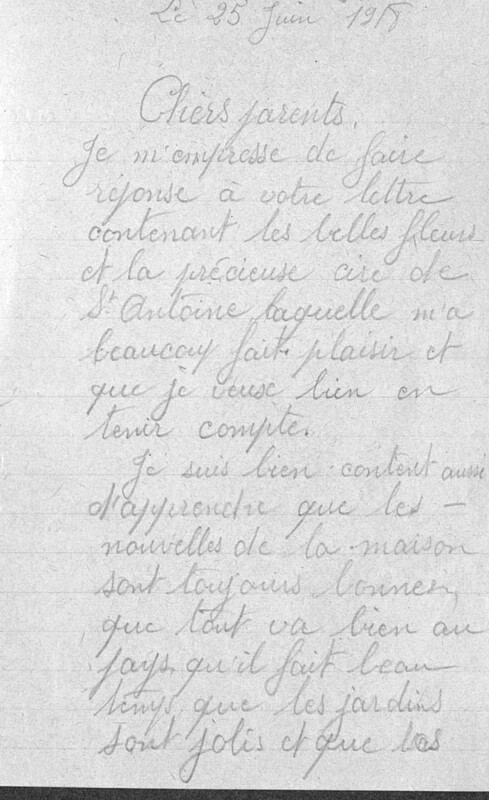 Le 25 Juin 1918
Chèrs parents.
Je m'empresse de faire
réponse à votre lettre
contenant les belles fleurs
et la précieuse cire de
St Antoine laquelle m'a
beaucoup fait plaisir et
que je veux bien en
tenir compte.
Je suis bien content aussi
d'apprendre que les –
nouvelles de la maison
sont toujours bonnes,
que tout va bien au
pays, qu'il fait beau
temps, que les jardins
sont jolis et que les